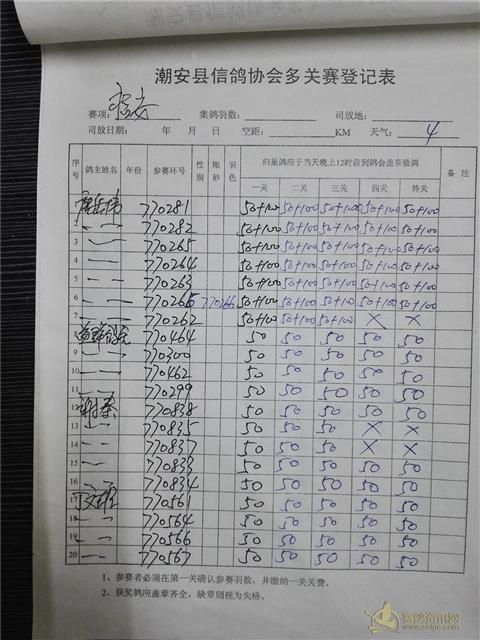 潮安县信鸽协会多关赛登记表
赛项： 集鸽羽数： 司放地：
司放日期： 年 月 日 空距： KM 天气： 4
序号 鸽主姓名 年份 参赛环号 性别 眼砂 羽色 归巢鸽应于当天晚上12时前到鸽会盖章验鸽 备注
一关 二关 三关 四关 终关
770281 50+100 50+100 50+100 50+100 50+100
2 770282 50+100 50+100 50+100 50+100 50+100
3 770265 50+100 50+100 50+100 50+100 50+100
4 770264 50+100 50+100 50+100 50+100 50+100
5 770263 50+100 50+100 50+100 50+100 50+100
6 770266 770266 50+100 50+100 50+100 50+100 50+100
7 770262 50+100 50+100 50+100 × ×
8 770464 50 50 50 50 50
9 770300 50 50 50 50 50
10 770462 50 50 50 50 50
11 770299 50 50 50 50 50
12 770838 50 50 50 50 50
13 770835 50 50 50 × ×
14 770837 50 50 50 × ×
15 770833 50 50 50 50 50
16 770834 50 50 50 50 50
17 770561 50 50 50 50 50
18 770564 50 50 50 50 50
19 770566 50 50 50 50 50
20 770567 50 50 50 50 50
1、参赛者必须在第一关确认参赛羽数，并缴纳一关关费。
2、获奖鸽应盖章齐全，缺章则视为失格。
赛鸽资讯网
www.saige.com